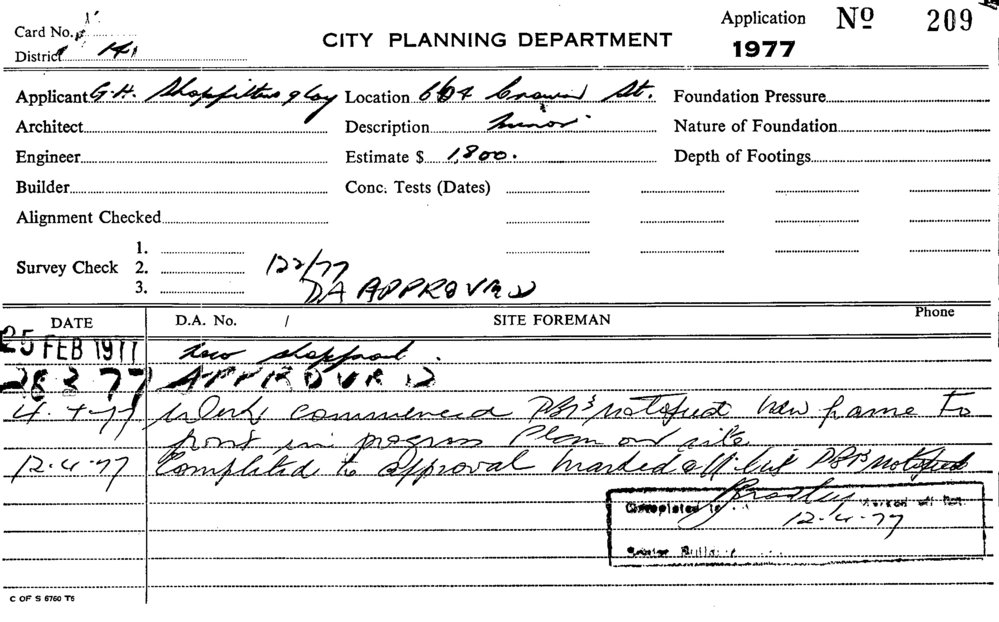 Card No.
District
CITY PLANNING DEPARTMENT
Application Nº 209
1977
Applicant G.H. Shopfitters & Co Location 604 Crown St. Foundation Pressure
Architect Description minor Nature of Foundation
Engineer Estimate $ 1,800. Depth of Footings
Builder Conc. Tests (Dates)
Alignment Checked
Survey Check 1. 2. 3.
122/77
DA APPROVED
DATE D.A. No. / SITE FOREMAN Phone
25 FEB 1977 new shopfront.
28 3 77 APPROVED
4.4.77 Work commenced notified new frame to
front in progress Plan on site
12.4.77 Completed to approval marked off list notified
Bradley
Completed to marked off list
12-4-77
C OF S 6760 T5